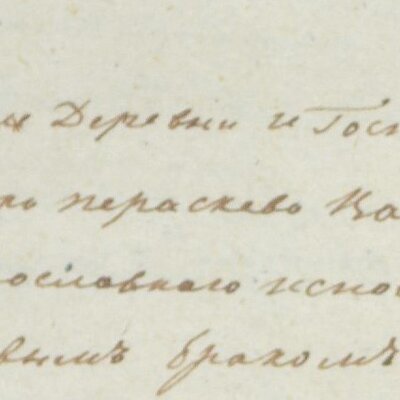 Деревни и Гос
пераскево Ка
ославного испов
вымъ бракомъ